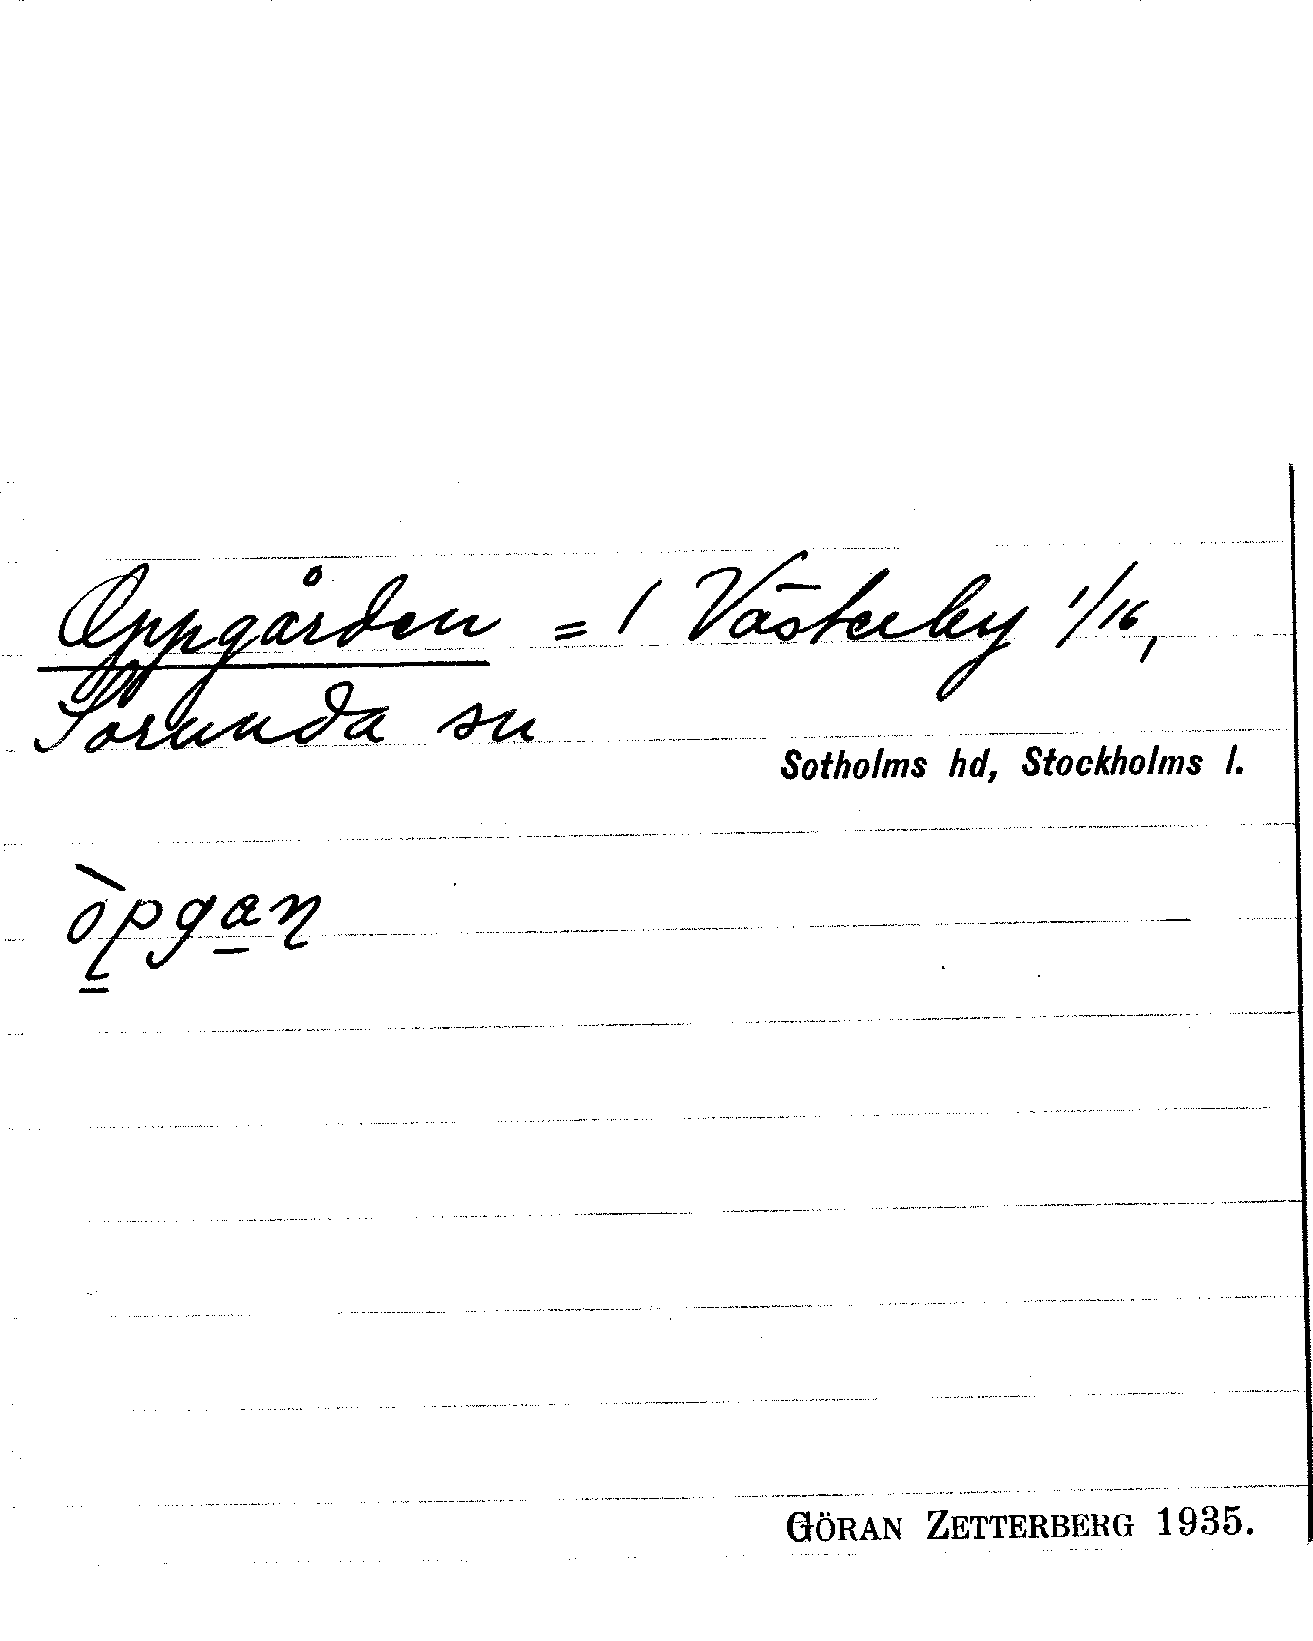 Oppgården = 1 Västerby 1/16,
Sorunda sn
Sotholms hd, Stockholms l.
òpgan
GÖRAN ZETTERBERG 1935.